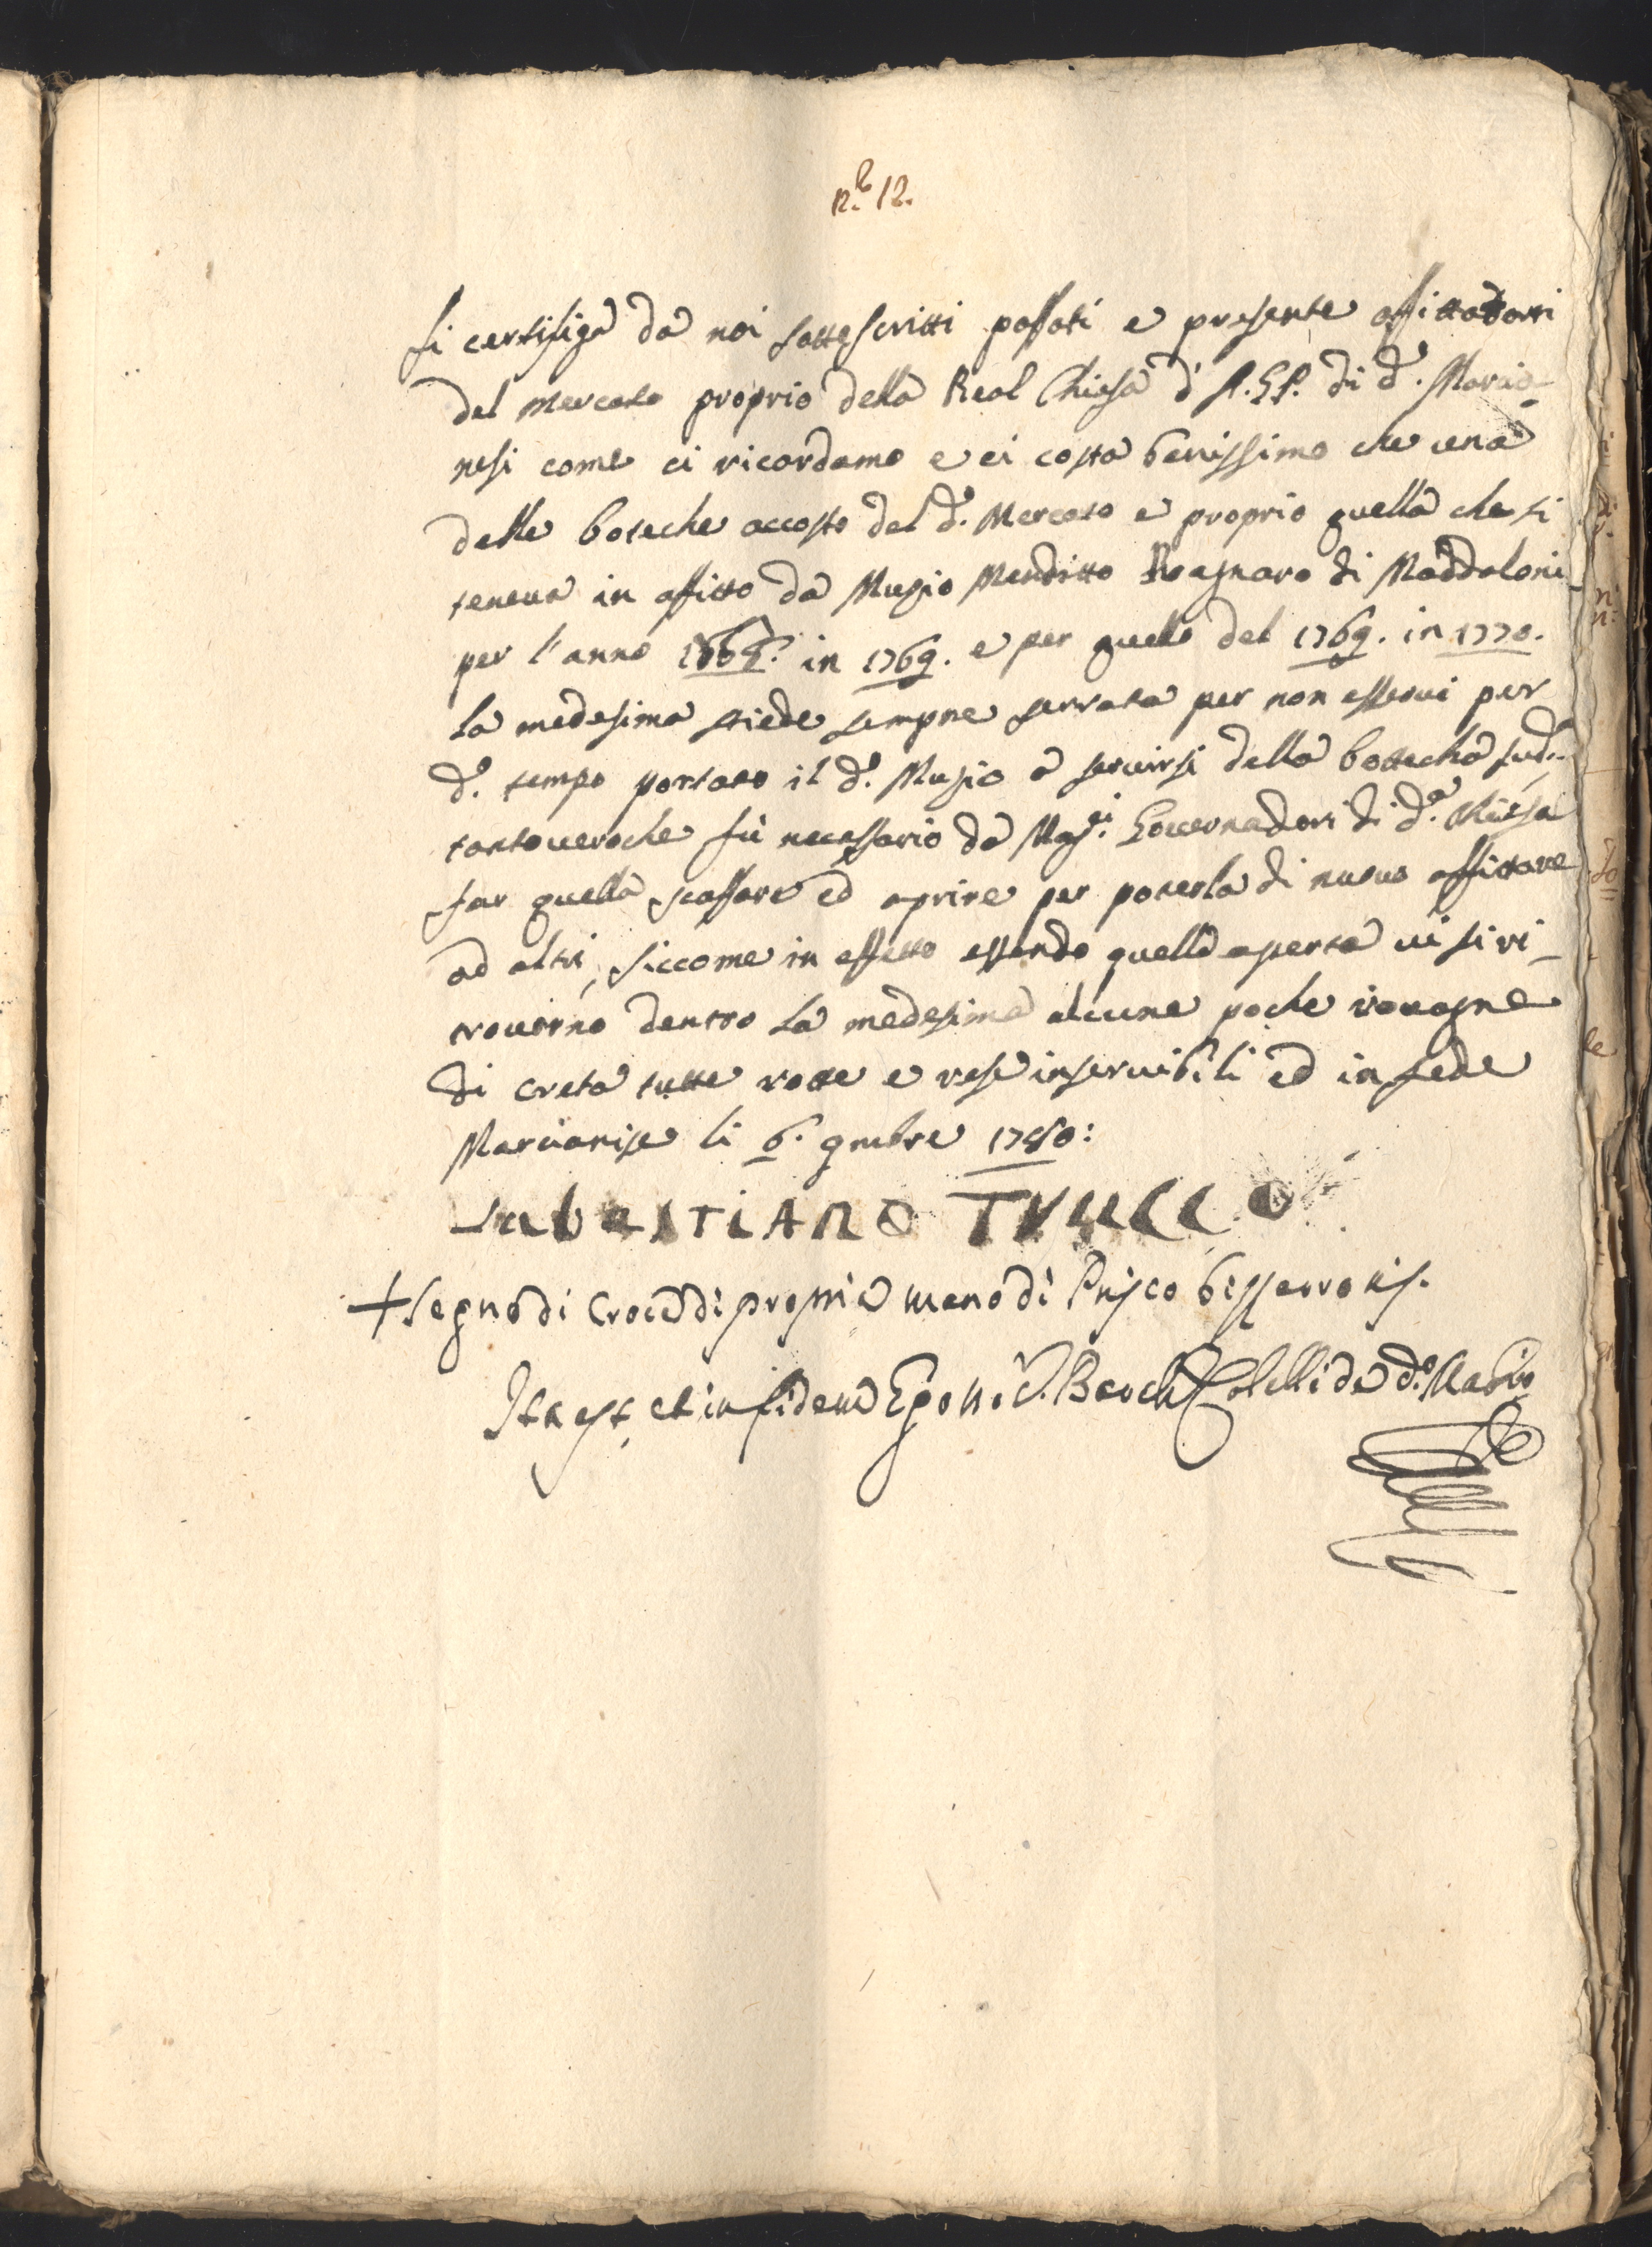 n.º 12.
Si certifiga da noi sottoscritti passati e presente affittatorri
del mercato proprio della Real Chiesa d' A.G.P. di d.º Marcia-
nesi come ci ricordamo e ci costa benissimo che una
delle boteche accosto del d.º Mercato e proprio quella che si
teneva in affitto da Muzio Menditto Roagnaro di Maddaloni
per l'anno in 1769. e per quello del 1769. in 1770.
la medesima stiede sempre serrata per non esservi per
d.º tempo portato il d.º Muzio a servirsi della bottecha sud.ª
tantoveroche fù necessario da Mag.ci Governadori di d.ª Chiesa
far quella scassare ed aprire per poterla di nuovo affittare
ad altri, siccome in effetto essendo quella aperta vi si ri-
trovorno dentro la medesima alcune poche rovagne
di creta tutte rotte e rese inservibili ed in fede
Marcianise li 6. 9mbre 1780:
sabastiano Trucco
+ Segno di Croce di propria mano di Prisco
Ita est, et in fidem Ego de d.º